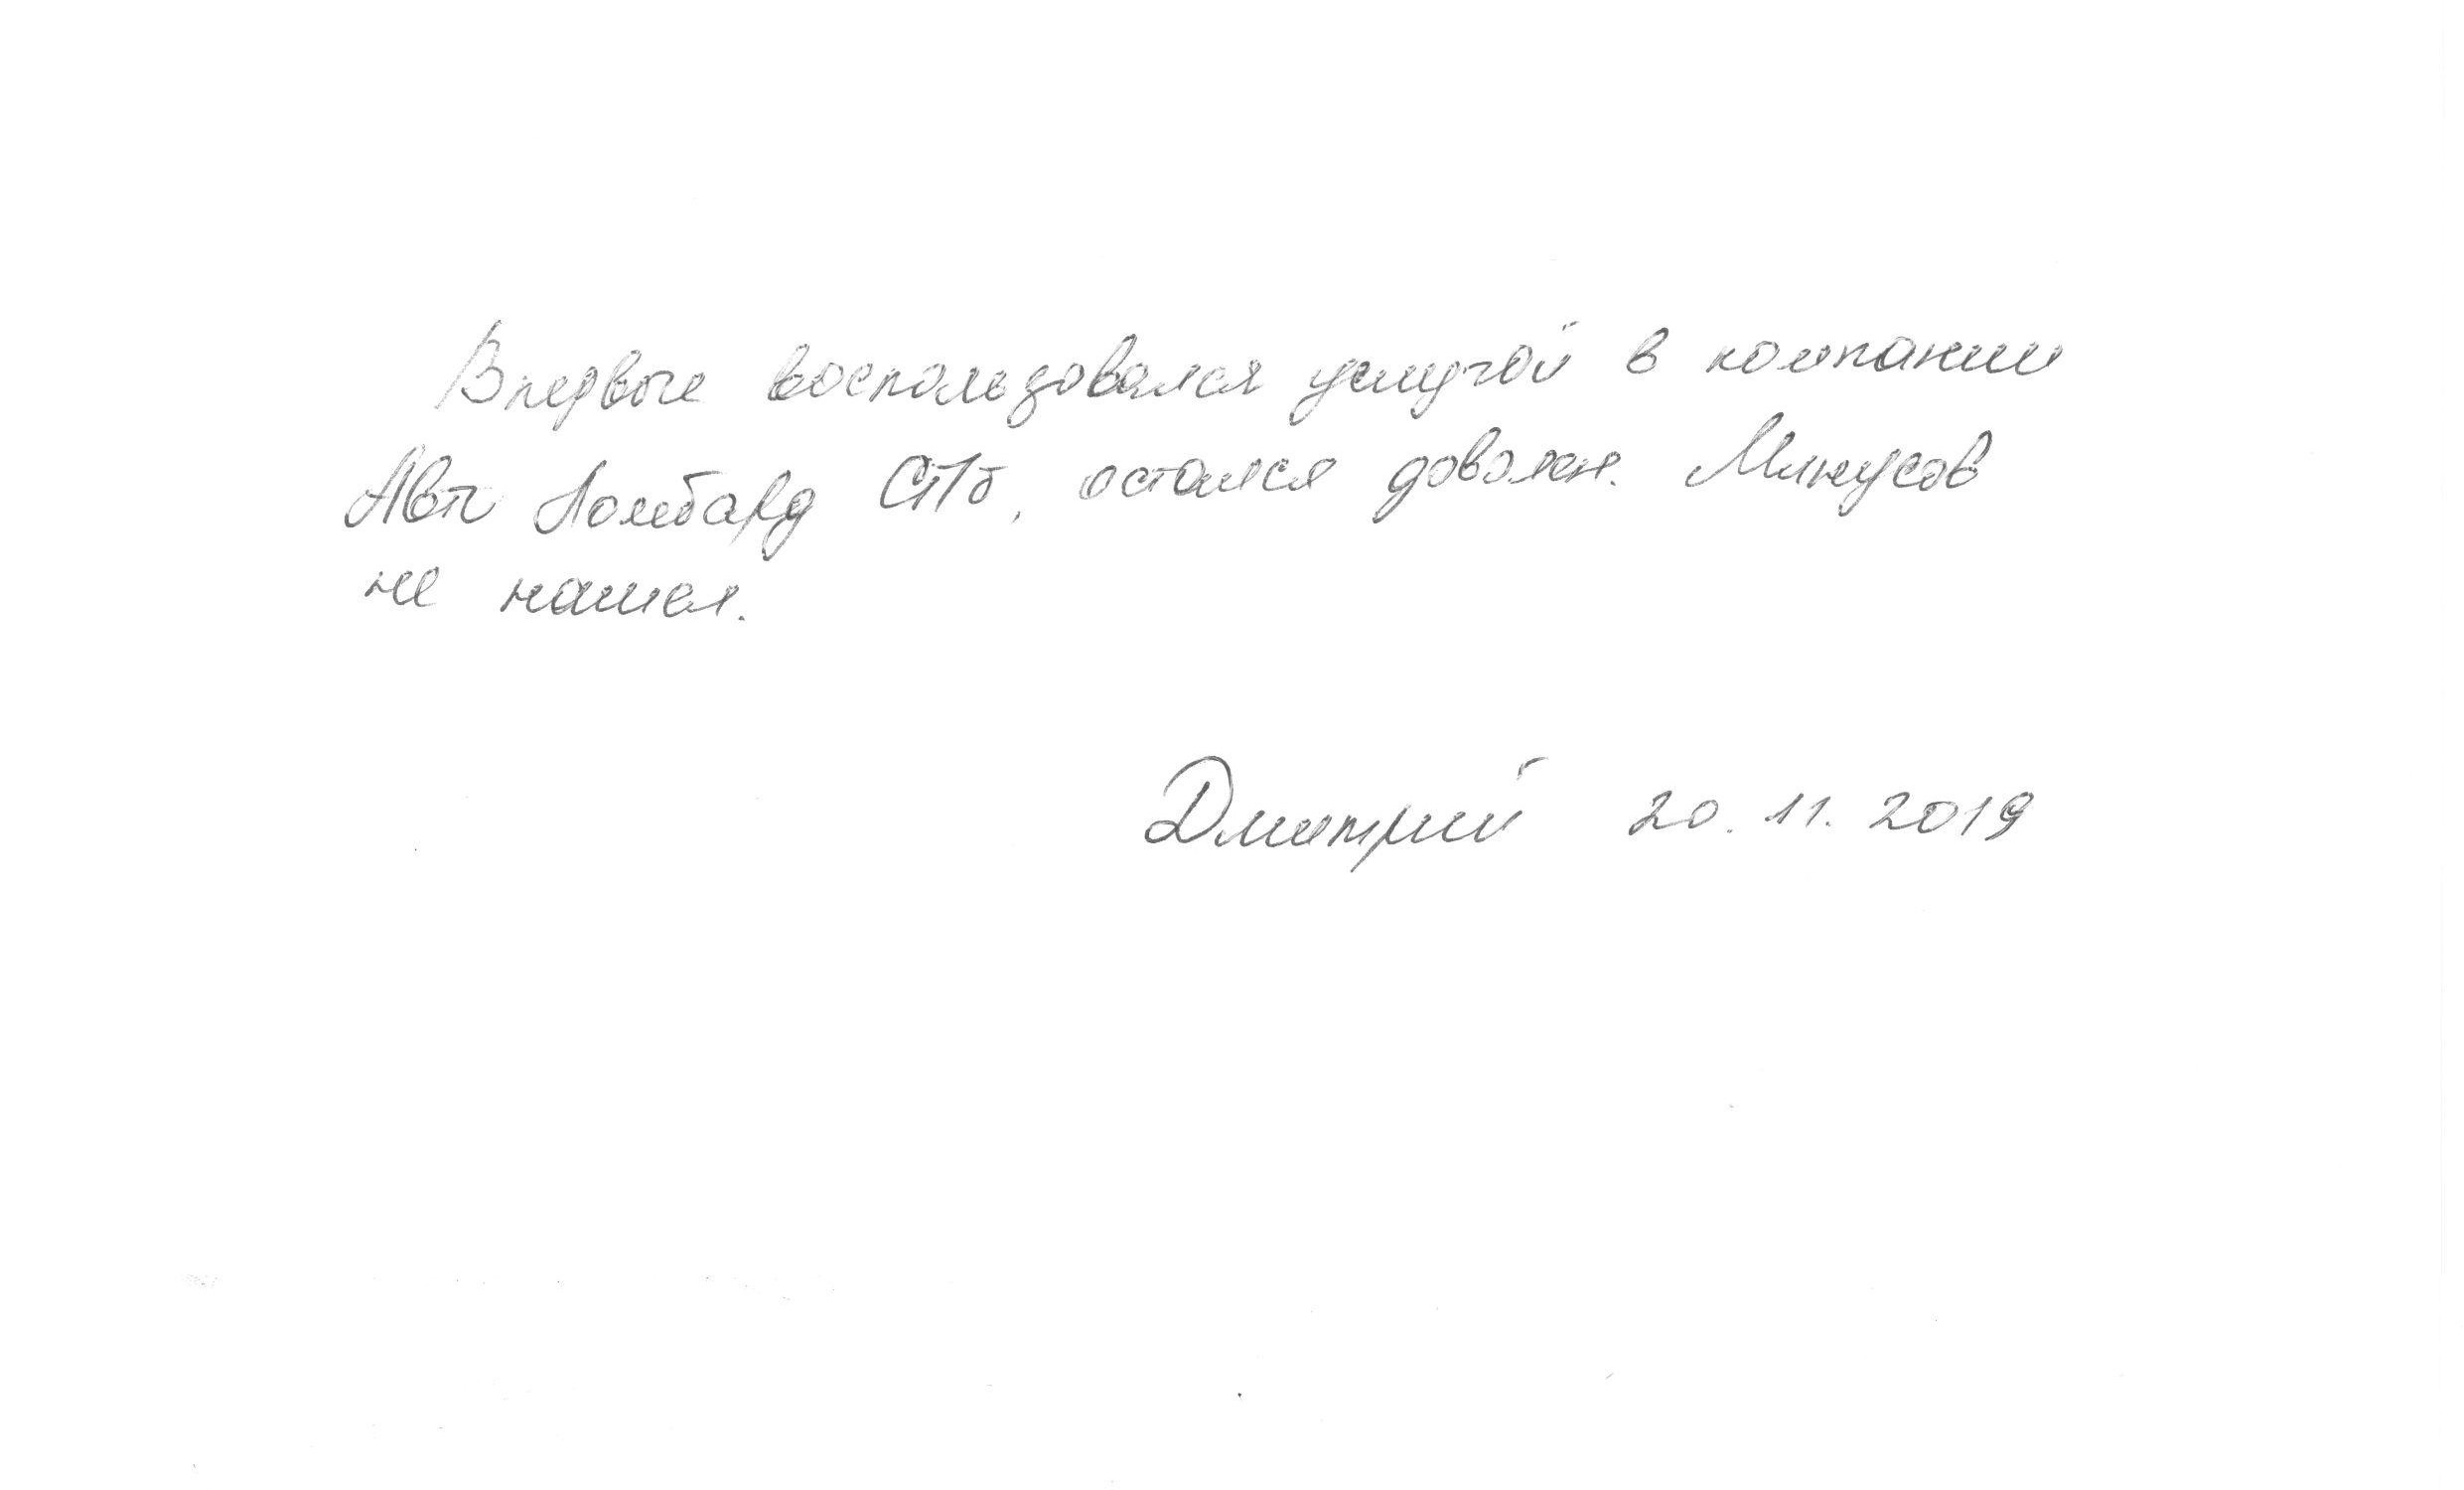 Впервые воспользовался услугой в компании
Авто Ломбард СПб, остался доволен. Минусов
не нашел.
Дмитрий 20.11.2019